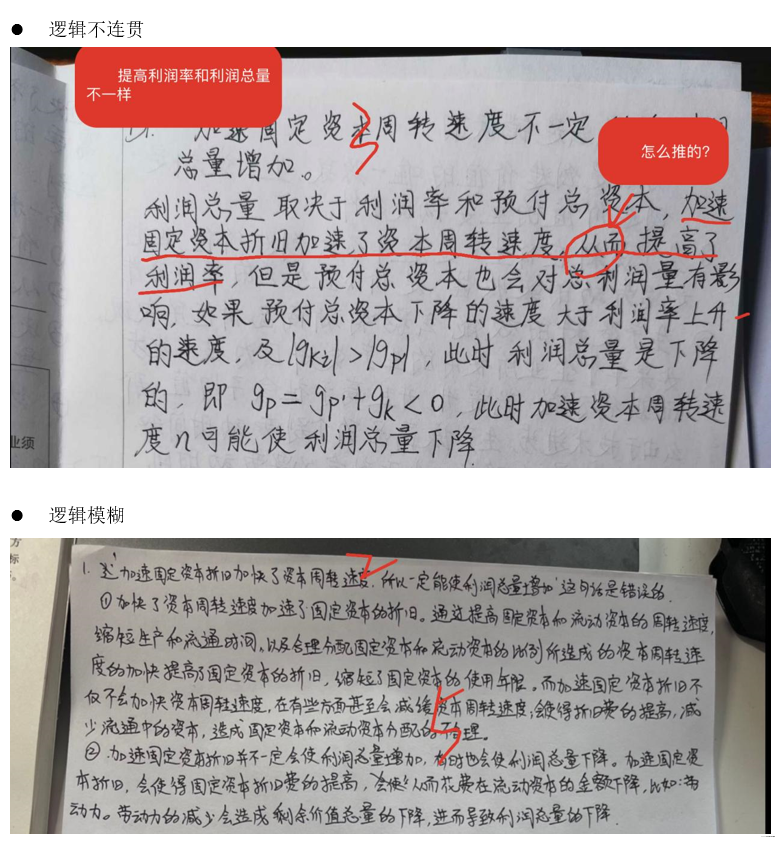 ● 逻辑不连贯
提高利润率和利润总量
不一样
加速固定资本周转速度不一定
怎么推的?
总量增加。
利润总量取决于利润率和预付总资本,加速
固定资本折旧加速了资本周转速度,从而提高了
利润率,但是预付总资本也会对总利润量有影
响,如果预付总资本下降的速度大于利润率上升
的速度,及|gk总|>|gp|,此时利润总量是下降
的,即 gp=gp'+gk<0,此时加速资本周转速
度n可能使利润总量下降
业须
● 逻辑模糊
方
标
1.这'加速固定资本折旧加快了资本周转速度,所以一定能使利润总量增加'这句话是错误的.
①加快了资本周转速度加速了固定资本的折旧。通过提高固定资本和流动资本的周转速度,
缩短生产和流通时间,以及合理分配固定资本和流动资本的比例所造成的资本周转速
度的加快提高了固定资本的折旧,缩短了固定资本的使用年限。而加速固定资本折旧不
仅不会加快资本周转速度,在有些方面甚至会减缓资本周转速度;会使得折旧费的提高,减
少流通中的资本,造成固定资本和流动资本分配的不合理。
②加速固定资本折旧并不一定会使利润总量增加,有时也会使利润总量下降。加速固定资
本折旧,会使得固定资本折旧费的提高,会使从而花费在流动资本的金额下降,比如:劳
动力。劳动力的减少会造成剩余价值总量的下降,进而导致利润总量的下降.